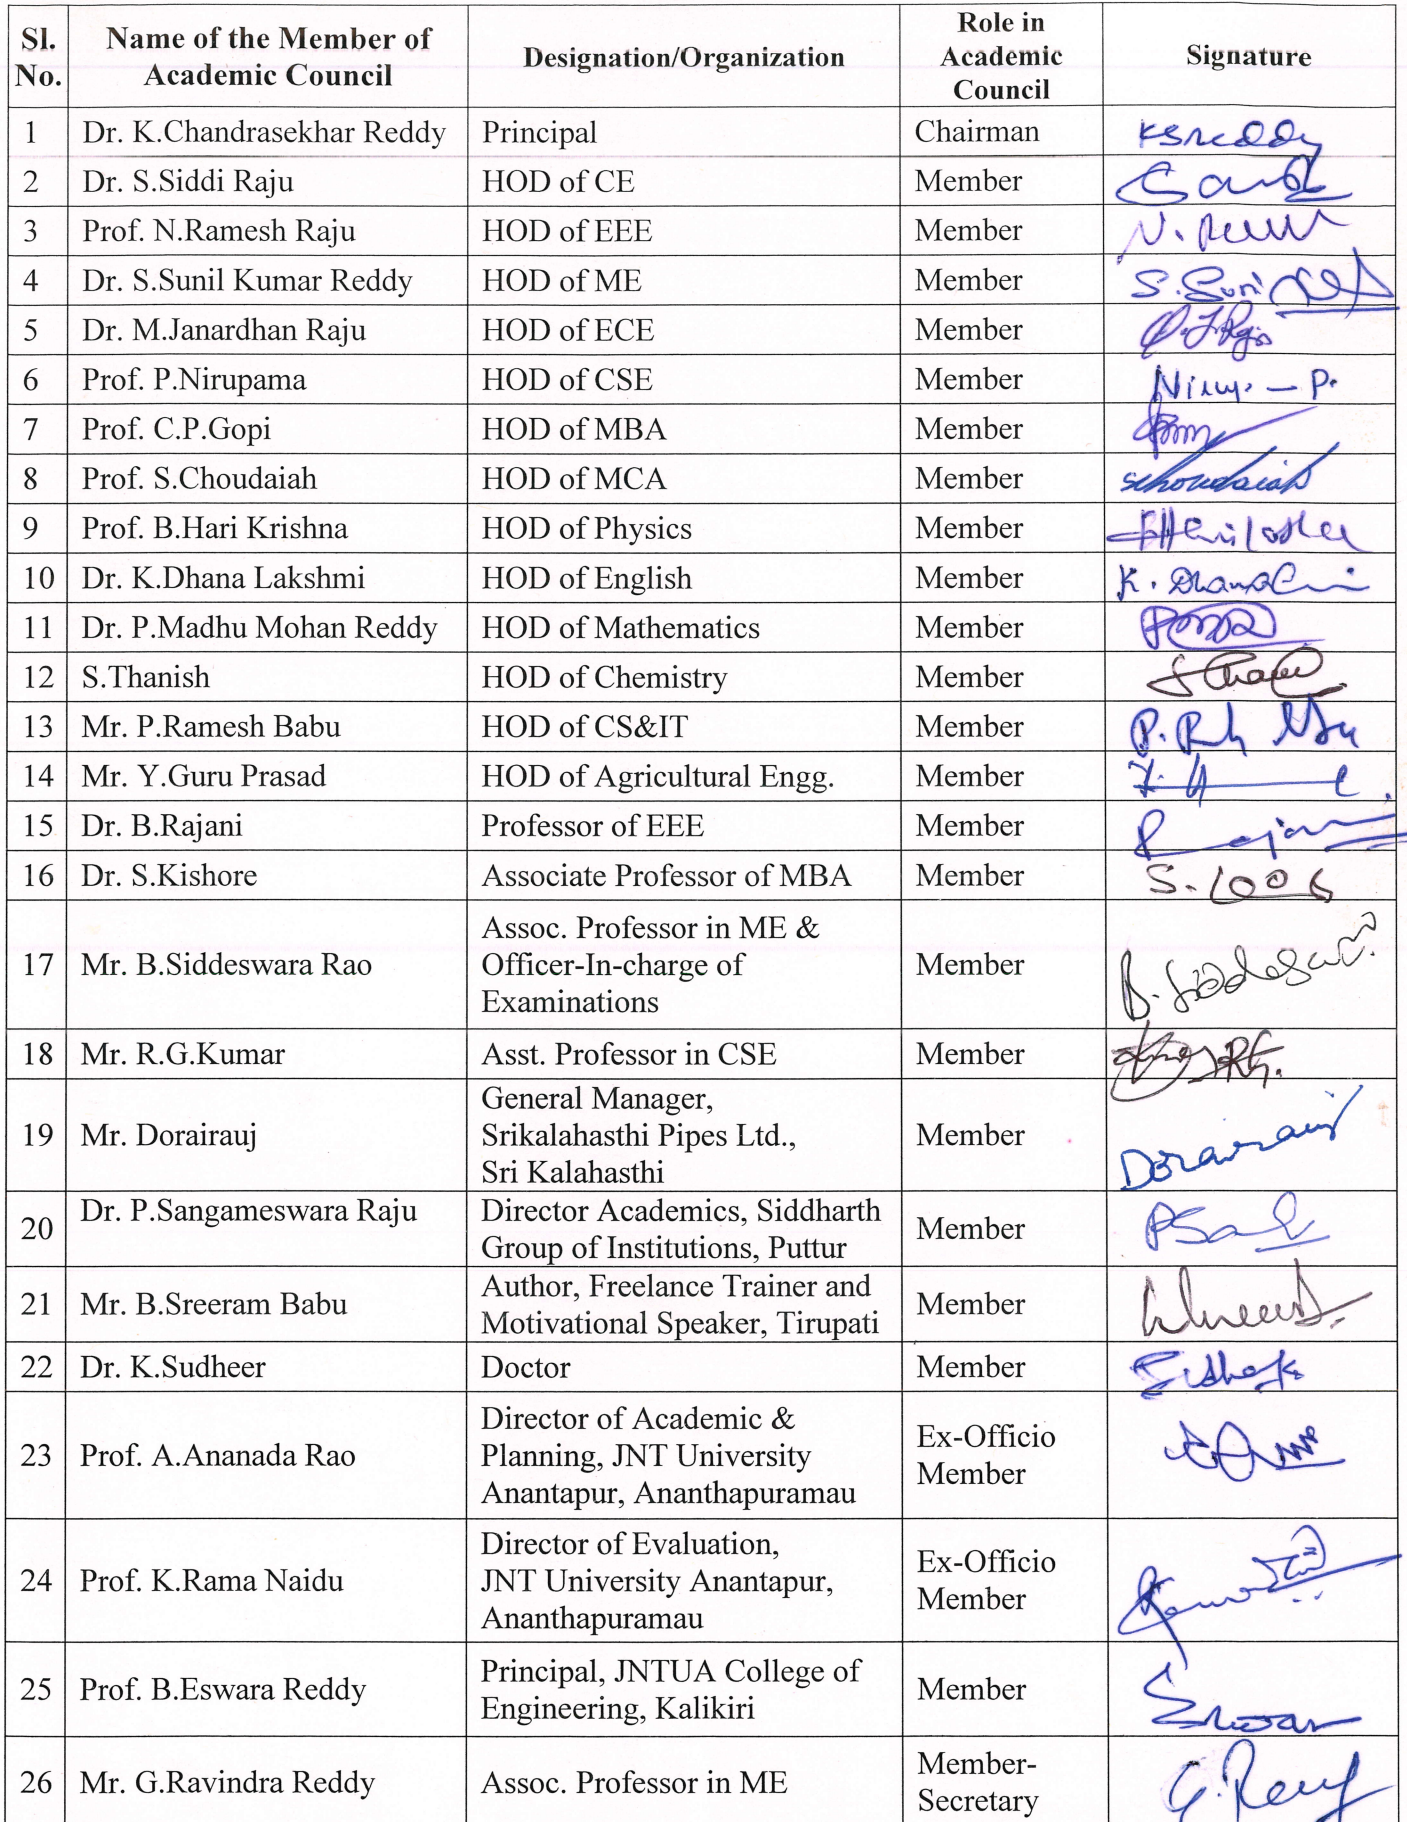 Sl. No. | Name of the Member of Academic Council | Designation/Organization | Role in Academic Council | Signature
1 | Dr. K.Chandrasekhar Reddy | Principal | Chairman | KSReddy
2 | Dr. S.Siddi Raju | HOD of CE | Member
3 | Prof. N.Ramesh Raju | HOD of EEE | Member
4 | Dr. S.Sunil Kumar Reddy | HOD of ME | Member
5 | Dr. M.Janardhan Raju | HOD of ECE | Member
6 | Prof. P.Nirupama | HOD of CSE | Member
7 | Prof. C.P.Gopi | HOD of MBA | Member
8 | Prof. S.Choudaiah | HOD of MCA | Member | schoudaiah
9 | Prof. B.Hari Krishna | HOD of Physics | Member
10 | Dr. K.Dhana Lakshmi | HOD of English | Member
11 | Dr. P.Madhu Mohan Reddy | HOD of Mathematics | Member
12 | S.Thanish | HOD of Chemistry | Member
13 | Mr. P.Ramesh Babu | HOD of CS&IT | Member
14 | Mr. Y.Guru Prasad | HOD of Agricultural Engg. | Member
15 | Dr. B.Rajani | Professor of EEE | Member
16 | Dr. S.Kishore | Associate Professor of MBA | Member
17 | Mr. B.Siddeswara Rao | Assoc. Professor in ME & Officer-In-charge of Examinations | Member
18 | Mr. R.G.Kumar | Asst. Professor in CSE | Member
19 | Mr. Dorairauj | General Manager, Srikalahasthi Pipes Ltd., Sri Kalahasthi | Member | Dorairauj
20 | Dr. P.Sangameswara Raju | Director Academics, Siddharth Group of Institutions, Puttur | Member
21 | Mr. B.Sreeram Babu | Author, Freelance Trainer and Motivational Speaker, Tirupati | Member
22 | Dr. K.Sudheer | Doctor | Member
23 | Prof. A.Ananada Rao | Director of Academic & Planning, JNT University Anantapur, Ananthapuramau | Ex-Officio Member
24 | Prof. K.Rama Naidu | Director of Evaluation, JNT University Anantapur, Ananthapuramau | Ex-Officio Member
25 | Prof. B.Eswara Reddy | Principal, JNTUA College of Engineering, Kalikiri | Member
26 | Mr. G.Ravindra Reddy | Assoc. Professor in ME | Member-Secretary